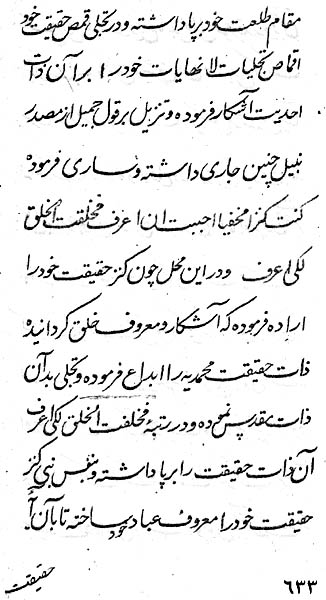 مقام طلعت خود برپا داشته و در تجلی قمص حقیقت خود
اقماص تجلیات لانهایات خود را بر آن ذات
احدیت آشکار فرموده و تنزیل بر قول جمیل از مصدر
نبیل چنین جاری داشته و ساری فرموده
کنت کنزا مخفیا احببت ان اعرف فخلقت الخلق
لکی اعرف و در این محل چون کنز حقیقت خود را
اراده فرموده که آشکار و معروف خلق گردانیده
ذات حقیقت محمدیه را ابداع فرموده و تجلی بدآن
ذات بقدیس نموده و در رتبهٔ فخلقت الخلق لکی اعرف
آن ذات حقیقت را برپا داشته و بنفس نبی کنز
حقیقت خود را معروف عباد خود ساخته تا بآن آ
حقیقت
٦٣٣